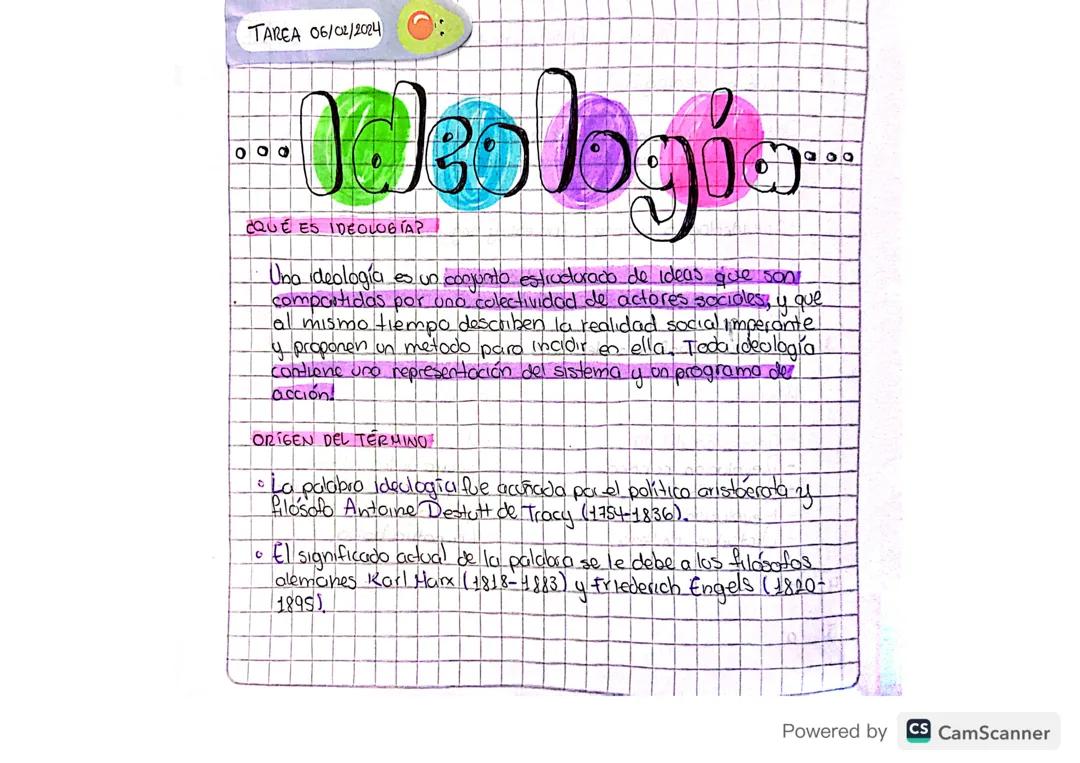 TAREA 06/02/2024
Ideología
¿QUÉ ES IDEOLOGÍA?
Una ideología es un conjunto estructurado de ideas que son
compartidas por una colectividad de actores sociales, y que
al mismo tiempo describen la realidad social imperante
y proponen un método para incidir en ella. Toda ideología
contiene una representación del sistema y un programa de
acción.
ORÍGEN DEL TÉRMINO
La palabra ideología fue acuñada por el político aristócrata y
filósofo Antoine Destutt de Tracy (1754-1836).
El significado actual de la palabra se le debe a los filósofos
alemanes Karl Marx (1818-1883) y Friederich Engels (1820-
1895).
Powered by CS CamScanner